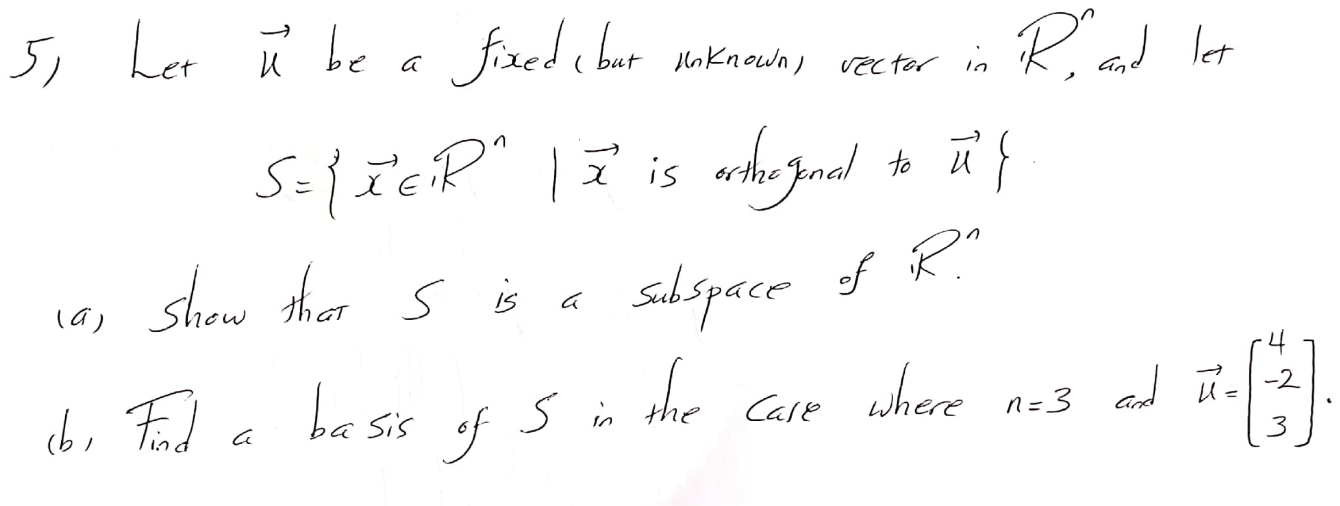 5) Let u⃗ be a fixed (but unknown) vector in ℝⁿ, and let
S = { x⃗ ∈ ℝⁿ | x⃗ is orthogonal to u⃗ }.
(a) show that S is a subspace of ℝⁿ.
(b) Find a basis of S in the case where n=3 and u⃗ = [4 -2 3].